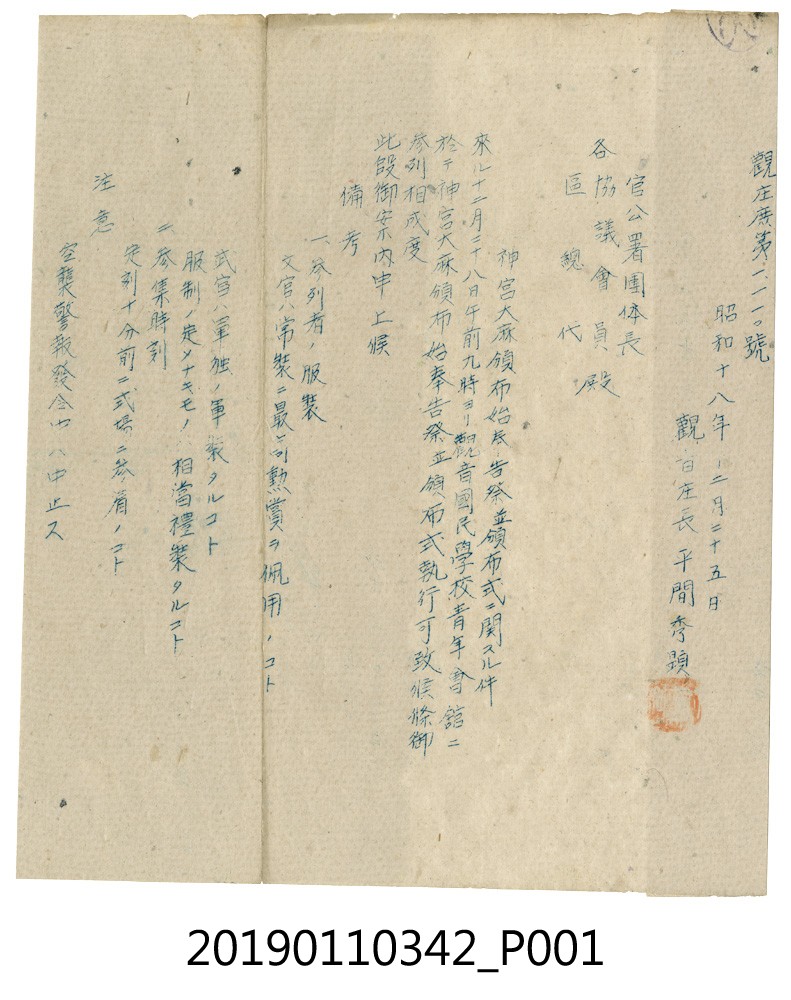 觀庄庶第一一一〇號
昭和十八年十二月二十五日
觀音庄長 平間秀顕
官公署團体長
各協議會員殿
區總代
神宮大麻頒布始奉告祭並頒布式ニ関スル件
來ル十二月二十八日午前九時ヨリ觀音國民學校青年會館ニ
於テ神宮大麻頒布始奉告祭並頒布式執行可致候條御
参列相成度
此段御案内申上候
備考
一、参列者ノ服装
文官ハ常装ニ最高勲賞ヲ佩用ノコト
武官ハ單独ノ軍装タルコト
服制ノ定メナキモノハ相當禮装タルコト
二、参集時刻
定刻十分前ニ式場ニ参着ノコト
注意
空襲警報發令中ハ中止ス
20190110342_P001